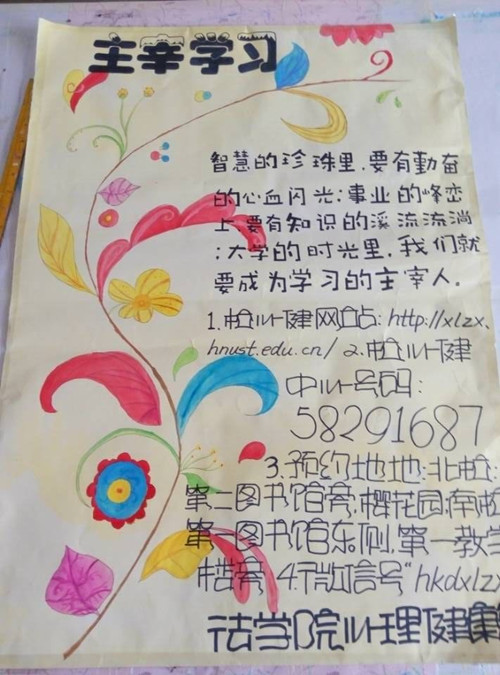 主宰学习
智慧的珍珠里,要有勤奋
的心血闪光;事业的峰峦
上,要有知识的溪流流淌
;大学的时光里,我们就
要成为学习的主宰人.
1.校心健网站: http://xlzx.
hnust.edu.cn/ 2.校心健
中心号码:
58291687
3.预约地地:北校:
第二图书馆旁,樱花园;南校
第一图书馆东侧,第一教学
楼旁 4.微信号“hkdxlzx
法学院心理健康